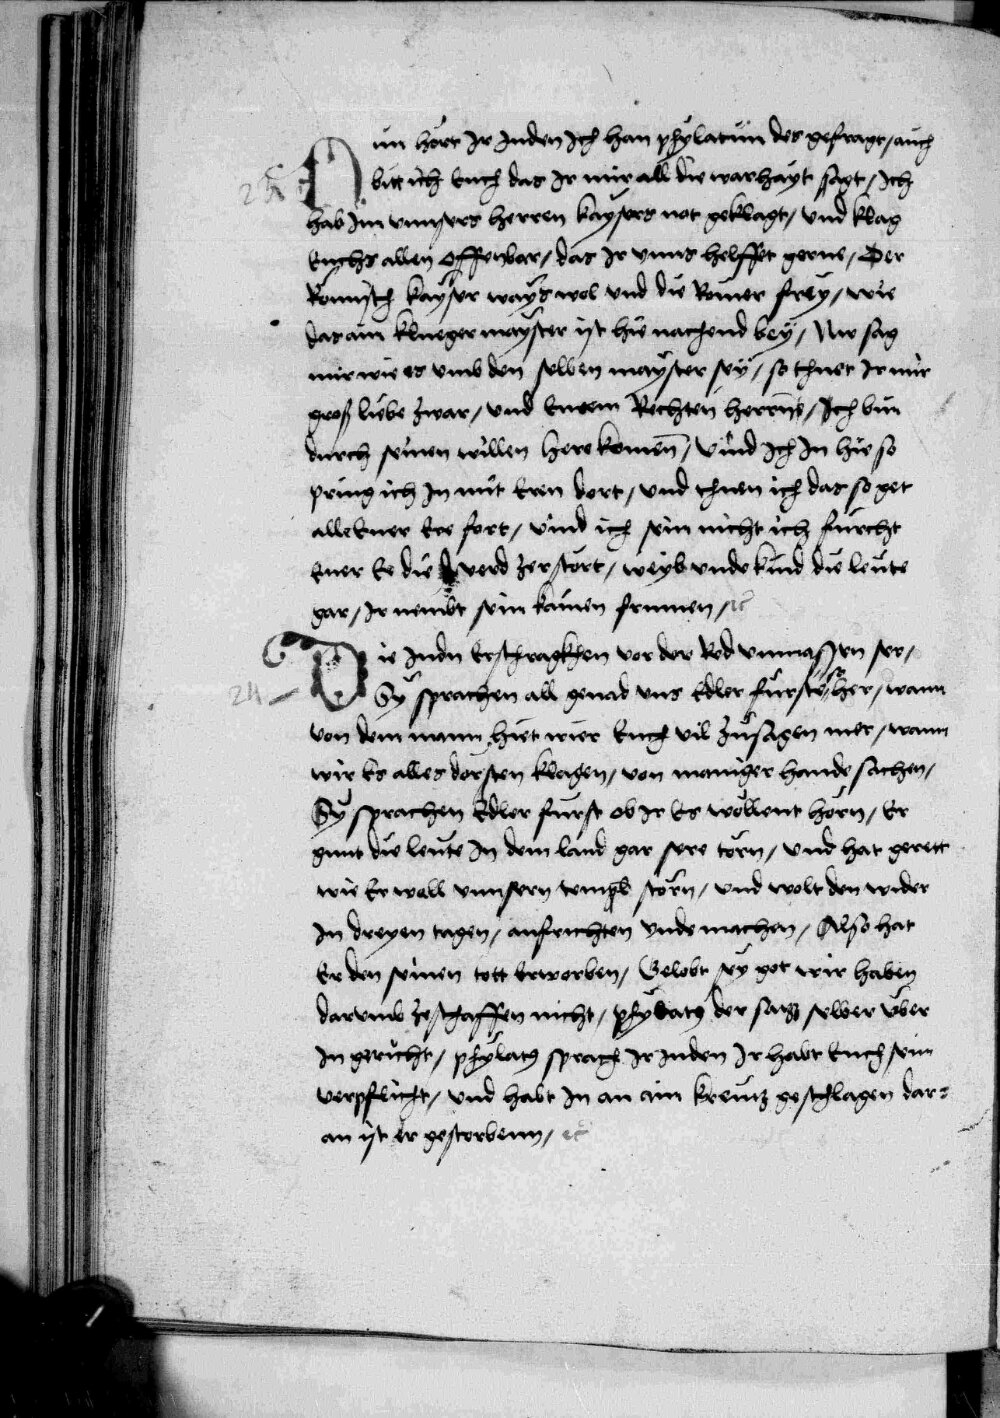 Nun hört Ir Juden Ich han phÿlatum des gefragt / auch
bitt ich Euch das Ir mir all die warhaÿt sagt / Ich
hab Im vnnsers herren kaÿsers not geklagt / vnd klag
Euchs allen offennbar / das Ir vnns helffet gerne / Der
Romisch kaÿser waÿs wol vnd die Romer freÿ / wie
das ain klueger maÿster ist hie nachend beÿ / Nw sag
mir wie es vmb den selben maÿster seÿ / so thuet Ir mir
groß liebe zwar / vnd Eurem Rechten herrn / Ich bin
durch seinen willen here komen / vind Ich In hie so
pring ich In mit Eren dort / vnd thuen ich das so get
alle Euer Ere fort / vind ich sein nicht ich fürcht
Euer Ee die werd zerstort / weÿb vnde kind die leüte
gar / Ir nembt sein kainen frumen / ec
24 Die Judn Erschragkhen vor der Red vnmassen ser /
Sÿ sprachen all genad vns Edler fürst her / wann
von dem mann hiet wier Euch vil zusagen mer / wann
wir Es alles dorsten klagen / von maniger hande sachen /
Sÿ sprachen Edler fürst ob Ir Es wöllent hörn / Er
gunt die leüte In dem land gar sere törn / vnd hat gerett
wie Er woll vnnsern tempel störn / vnd wolt den wider
In dreyen tagen / aufrichten vnde machen / Also hat
Er den seinen tott Erworben / Gelobt seÿ got wir haben
darumb zeschaffen nicht / phÿlatus der saß selber über
In gericht / phÿlatus sprach Ir Juden Ir habt Euch sein
verpflicht / vnd habt In an ain kreutz geschlagen dar=
an ist er gestorbenn / ec